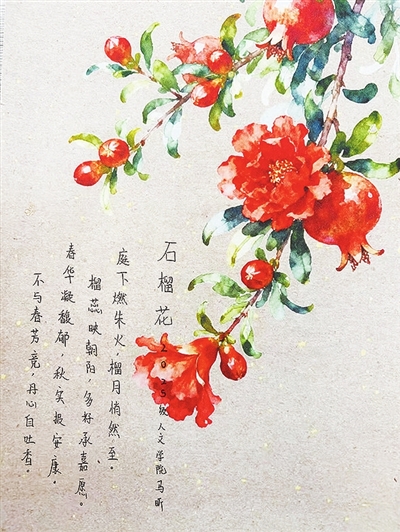 石榴花 2025级人文学院马昕
庭下燃朱火，榴月悄然至。
榴蕊映朝阳，多籽承嘉愿。
春华凝馥郁，秋实报安康。
不与春芳竞，丹心自吐香。